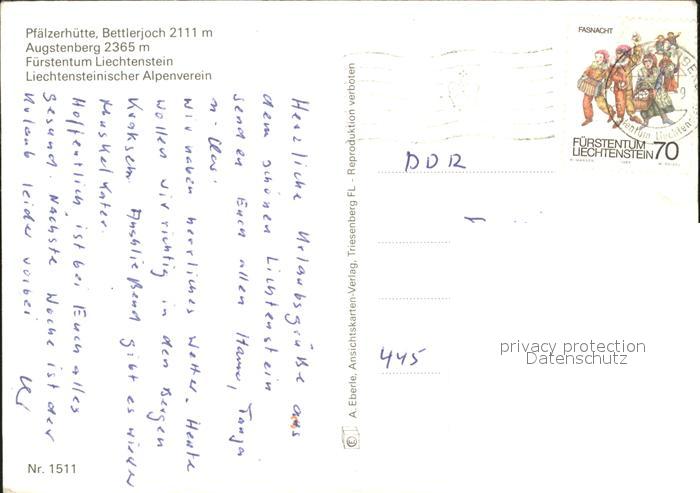 Pfälzerhütte, Bettlerjoch 2111 m
Augstenberg 2365 m
Fürstentum Liechtenstein
Liechtensteinischer Alpenverein
Herzliche Urlaubsgrüße aus
dem schönen Lichtenstein
senden Euch allen Hans, Tanja
Wir haben herrliches Wetter. Heute
wollen wir richtig in den Bergen
Kraxseln. Anschließend gibt es wieder
Muskelkater.
Hoffentlich ist bei Euch alles
gesund. Nächste Woche ist der
Urlaub leider vorbei
Nr. 1511
A. Eberle, Ansichtskarten-Verlag, Triesenberg FL - Reproduktion verboten
FASNACHT
FÜRSTENTUM
LIECHTENSTEIN 70
DDR
445
privacy protection
Datenschutz